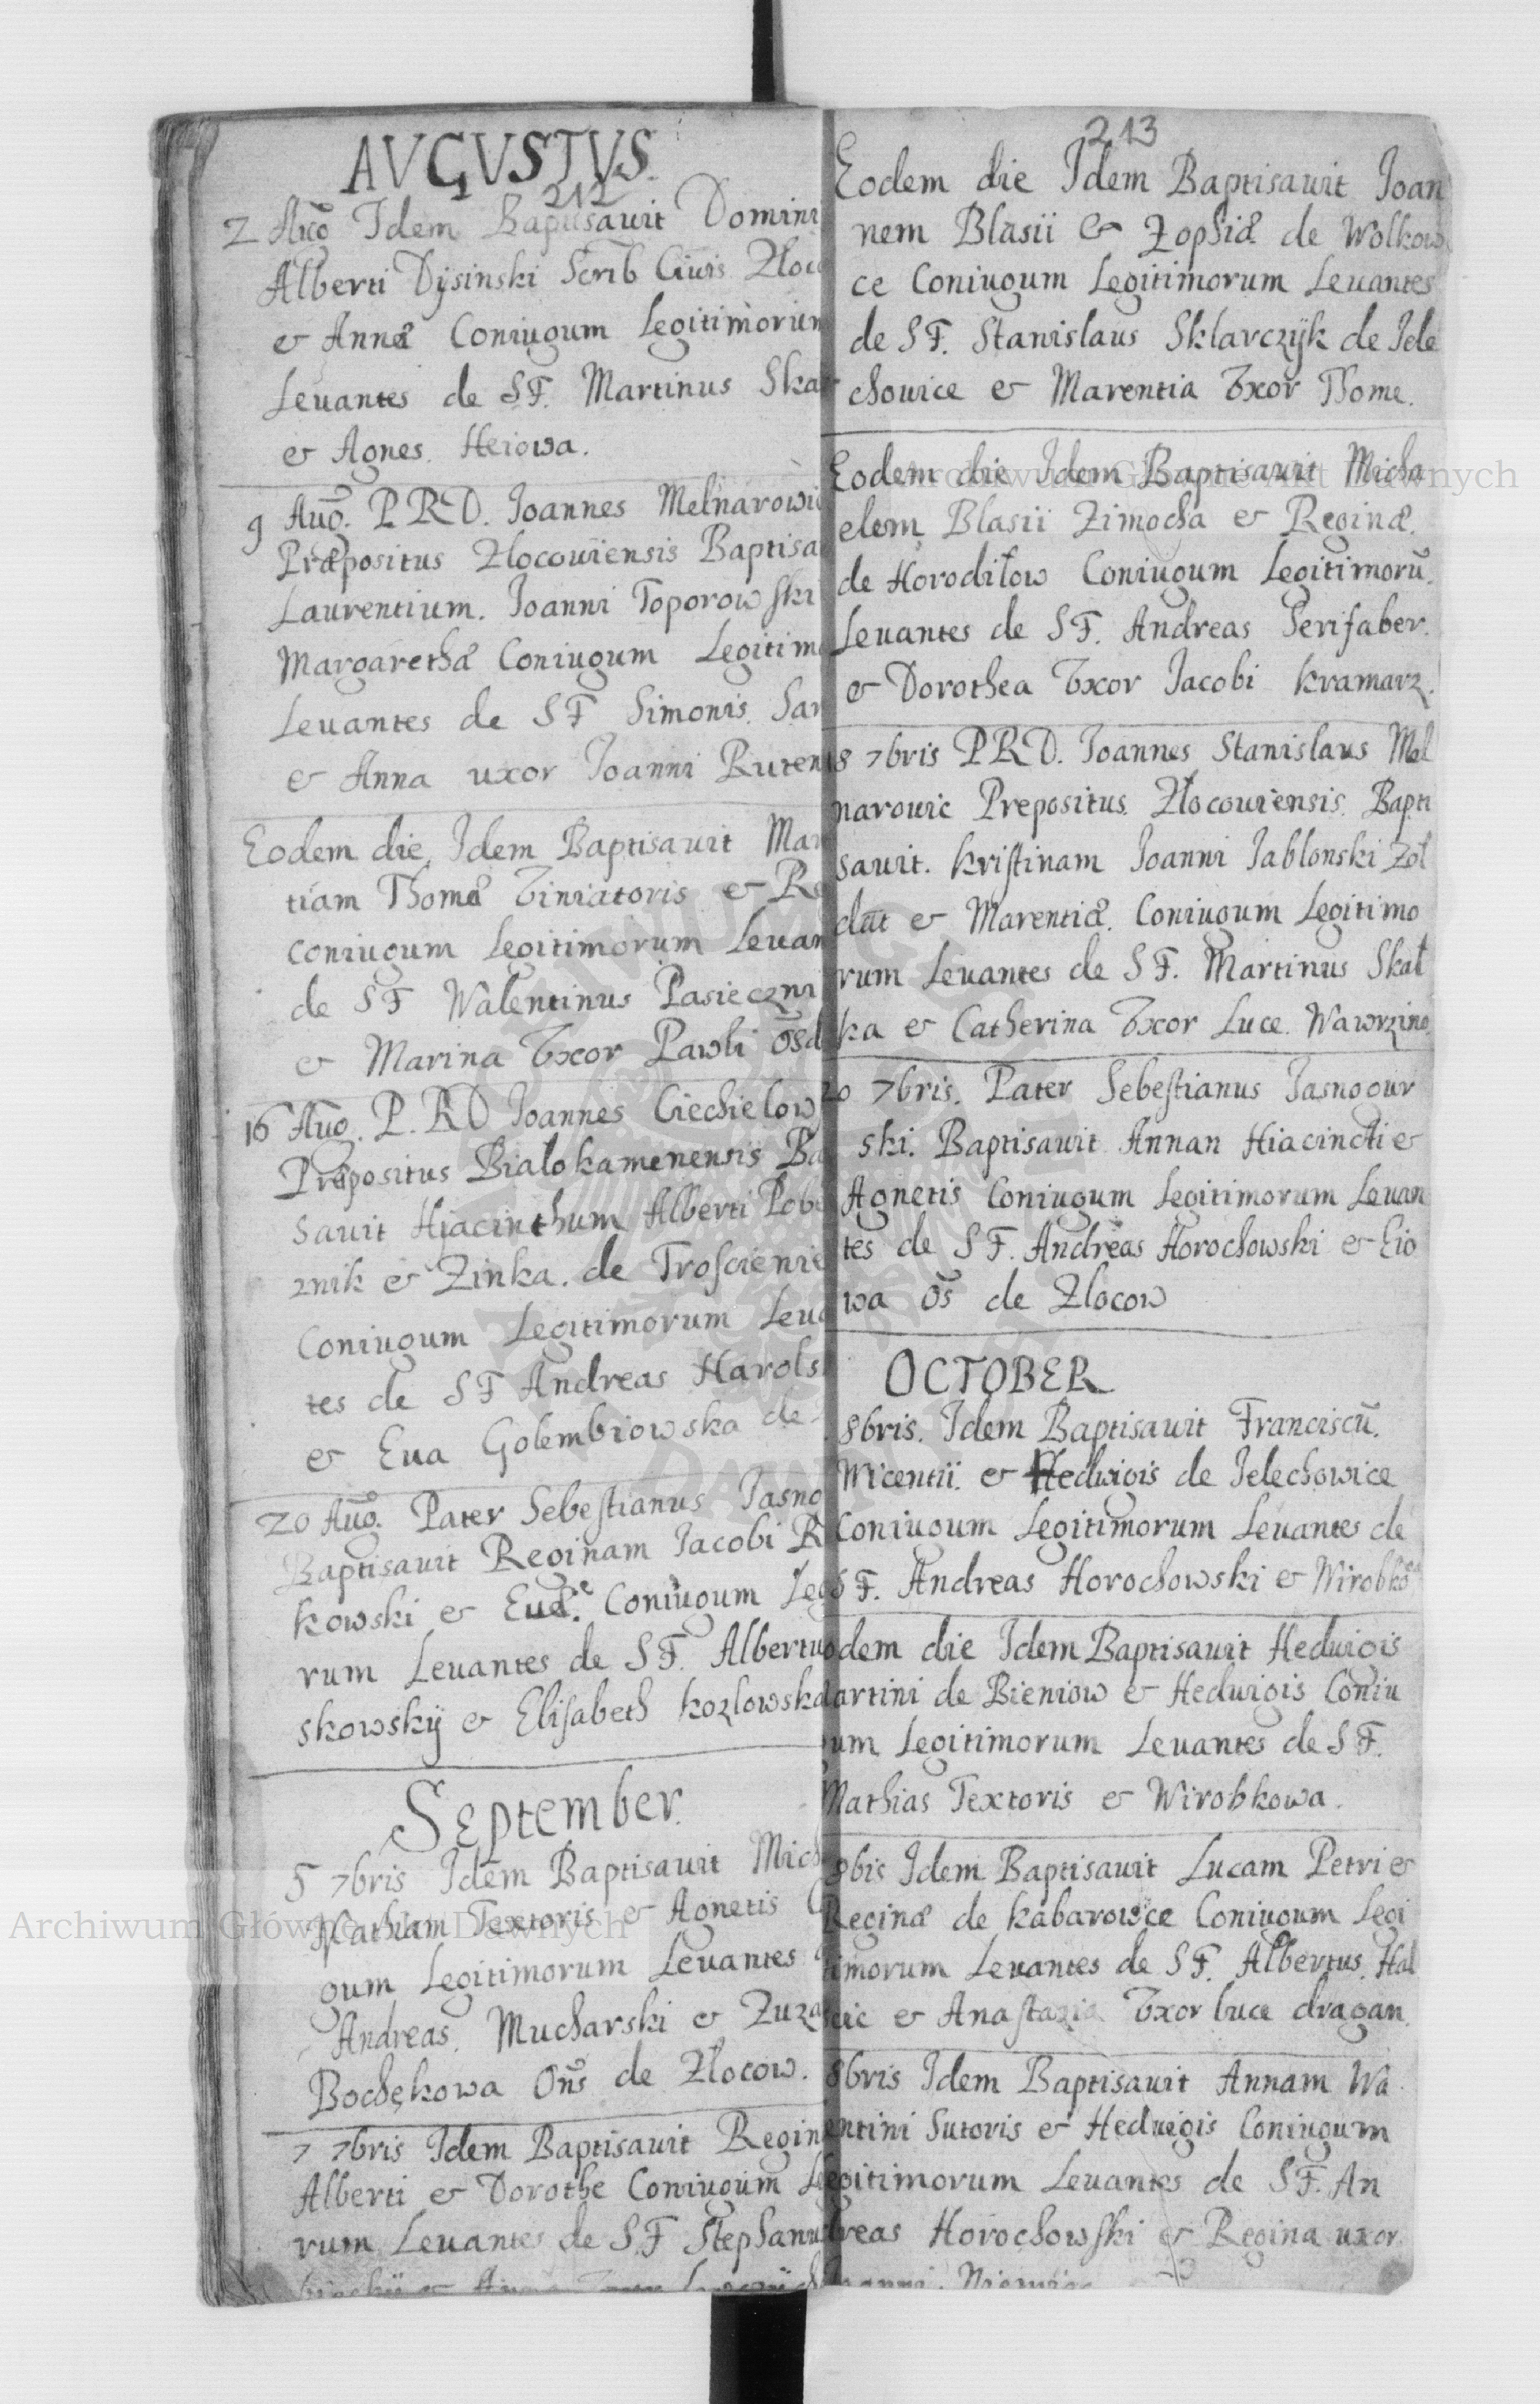 AVGVSTVS.
212
2 Aug Idem Baptisavit Domini
Alberti Dysinski Scrib Civis Złoc
& Annæ Coniugum Legitimorum
Levantes de S F. Martinus Skał
& Agnes Heiowa.
9 Aug. P R D. Ioannes Melnarowic
Præpositus Złocoviensis Baptisa
Laurentium. Ioanni Toporowski
Margarethæ Coniugum Legitim
Levantes de S F Simonis
& Anna uxor Ioanni Ruten
Eodem die Idem Baptisavit Mar
tiam Thomæ Tiniatoris & Re
Coniugum Legitimorum Levan
de S F Walentinus Pasieczni
& Marina Vxor Pawli
16 Aug. P. R D Ioannes Ciechielow
Præpositus Białokamenensis Ba
savit Hiacinthum Alberti Pob
znik & Zinka. de Troscienie
Coniugum Legitimorum Leva
tes de S F Andreas Harols
& Eva Golembiowska de
20 Aug. Pater Sebestianus Iasno
Baptisavit Reginam Iacobi R
kowski & Evæ. Coniugum Leg
rum Levantes de S F. Albertu
skowskÿ & Elisabeth Kozlowska
September.
5 7bris Idem Baptisavit Mich
Mathiam Textoris & Agnetis C
gum Legitimorum Levantes
Andreas. Mucharski & Zuza
Bochękowa Oñs de Złocow.
7 7bris Idem Baptisavit Regin
Alberti & Dorothe Coniugum Le
rum Levantes de S F Stephanu
213
Eodem die Idem Baptisavit Ioan
nem Blasii & Zophiæ de Wolkow
ce Coniugum Legitimorum Levantes
de S F. Stanislaus Sklarczÿk de Iele
chovice & Marentia Vxor Thome.
Eodem die Idem Baptisavit Micha
elem Blasii Zimocha & Reginæ.
de Horodiłow Coniugum Legitimorũ.
Levantes de S F. Andreas Serifaber.
& Dorothea Vxor Iacobi Kramarz.
18 7bris P R D. Ioannes Stanislaus Mel
narowic Prepositus Złocoviensis Bapti
savit. Kristinam Ioanni Iablonski Zoł
dat & Marentiæ. Coniugum Legitimo
rum Levantes de S F. Martinus Skał
ka & Catherina Vxor Luce. Wawrzino
20 7bris. Pater Sebestianus Iasnogur
ski. Baptisavit Annan Hiacincti &
Agnetis Coniugum Legitimorum Levan
tes de S F. Andreas Horochowski & Eio
wa Oñs de Złocow
OCTOBER
8bris. Idem Baptisavit Franciscũ.
Wicentii. & Hedvigis de Ielechowice
Coniugum Legitimorum Levantes de
S F. Andreas Horochowski & Wirobko
odem die Idem Baptisavit Hedvigis
artini de Bieniow & Hedwigis Coniu
um Legitimorum Levantes de S F.
Mathias Textoris & Wirobkowa.
8bis Idem Baptisavit Lucam Petri &
Reginæ de Kabarowce Coniugum Legi
timorum Levantes de S F. Albertus Hal
cic & Anastazia Vxor Luca dragan.
8bris Idem Baptisavit Annam Wa
entini Sutoris & Hedvigis Coniugum
egitimorum Levantes de S F. An
dreas Horochowski & Regina uxor
oanni.
Archiwum Główne Akt Dawnych
Archiwum Główne Akt Dawnych